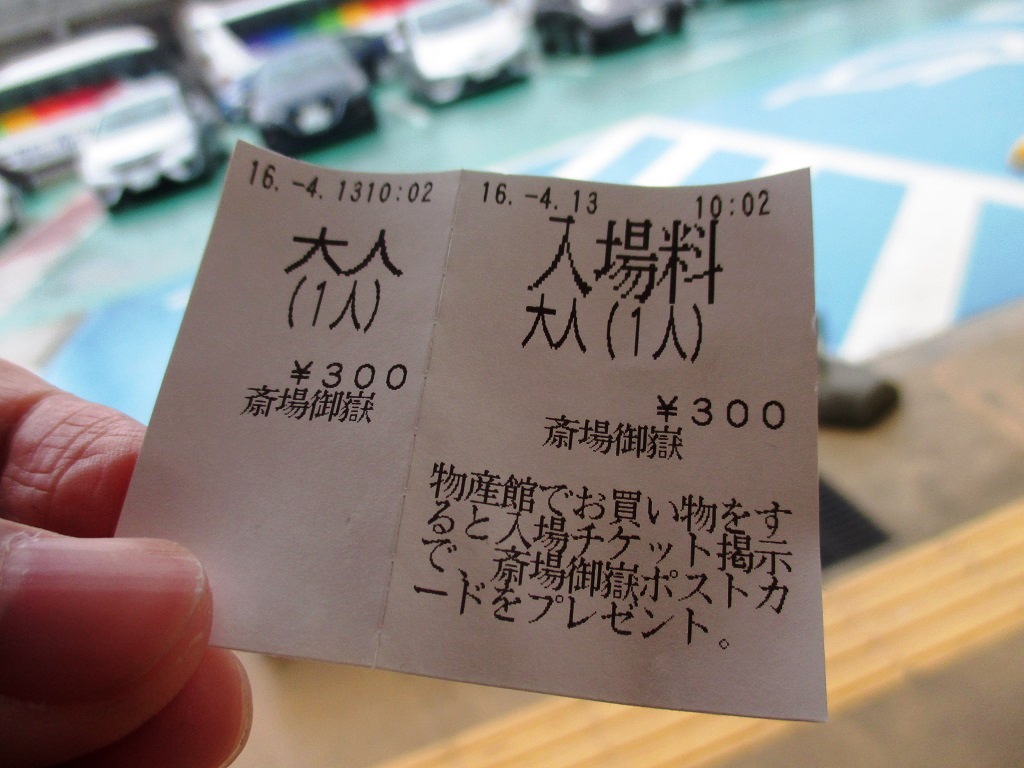 16.-4.1310:02
大人
(1人)
¥300
斎場御嶽
16.-4.13 10:02
入場料
大人(1人)
¥300
斎場御嶽
物産館でお買い物をす
ると入場チケット掲示
で、斎場御嶽ポストカ
ードをプレゼント。